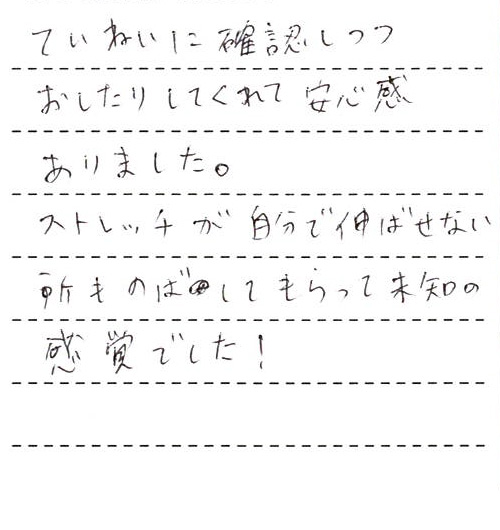 ていねいに確認しつつ
おしたりしてくれて安心感
ありました。
ストレッチが自分で伸ばせない
所ものばしてもらって未知の
感覚でした!